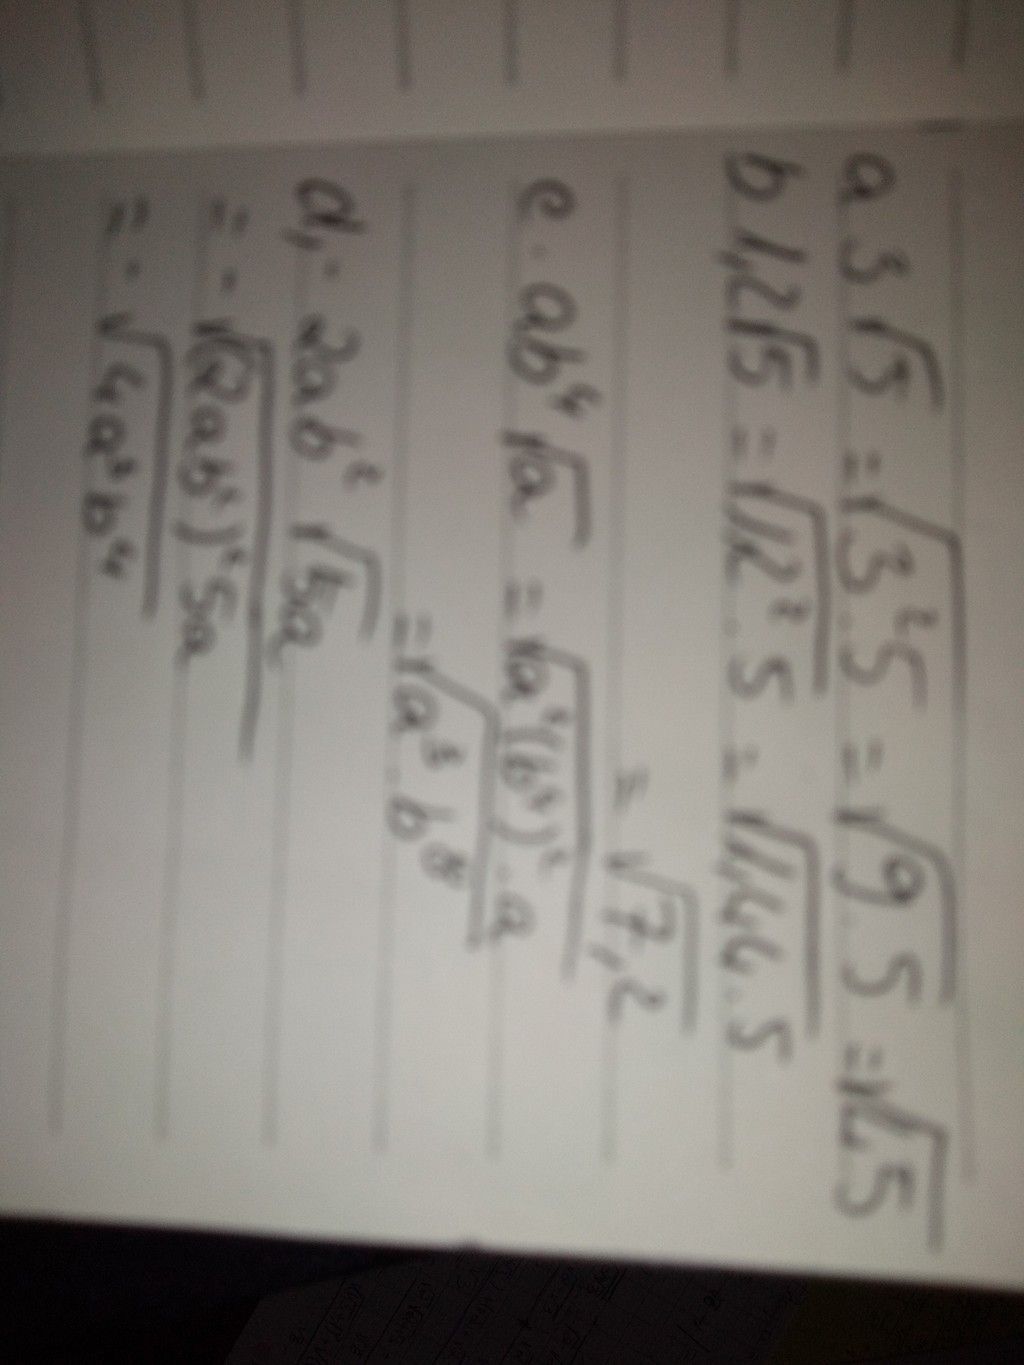 a 3√5 = √3².5 = √9.5 = √45
b 1,2√5 = √1,2².5 = √1,44.5
= √7,2
c. ab⁴√a = √a²(b⁴)².a
= √a³.b⁸
d, - 2ab²√5a
= - √(2ab²)²5a
= - √4a²b⁴